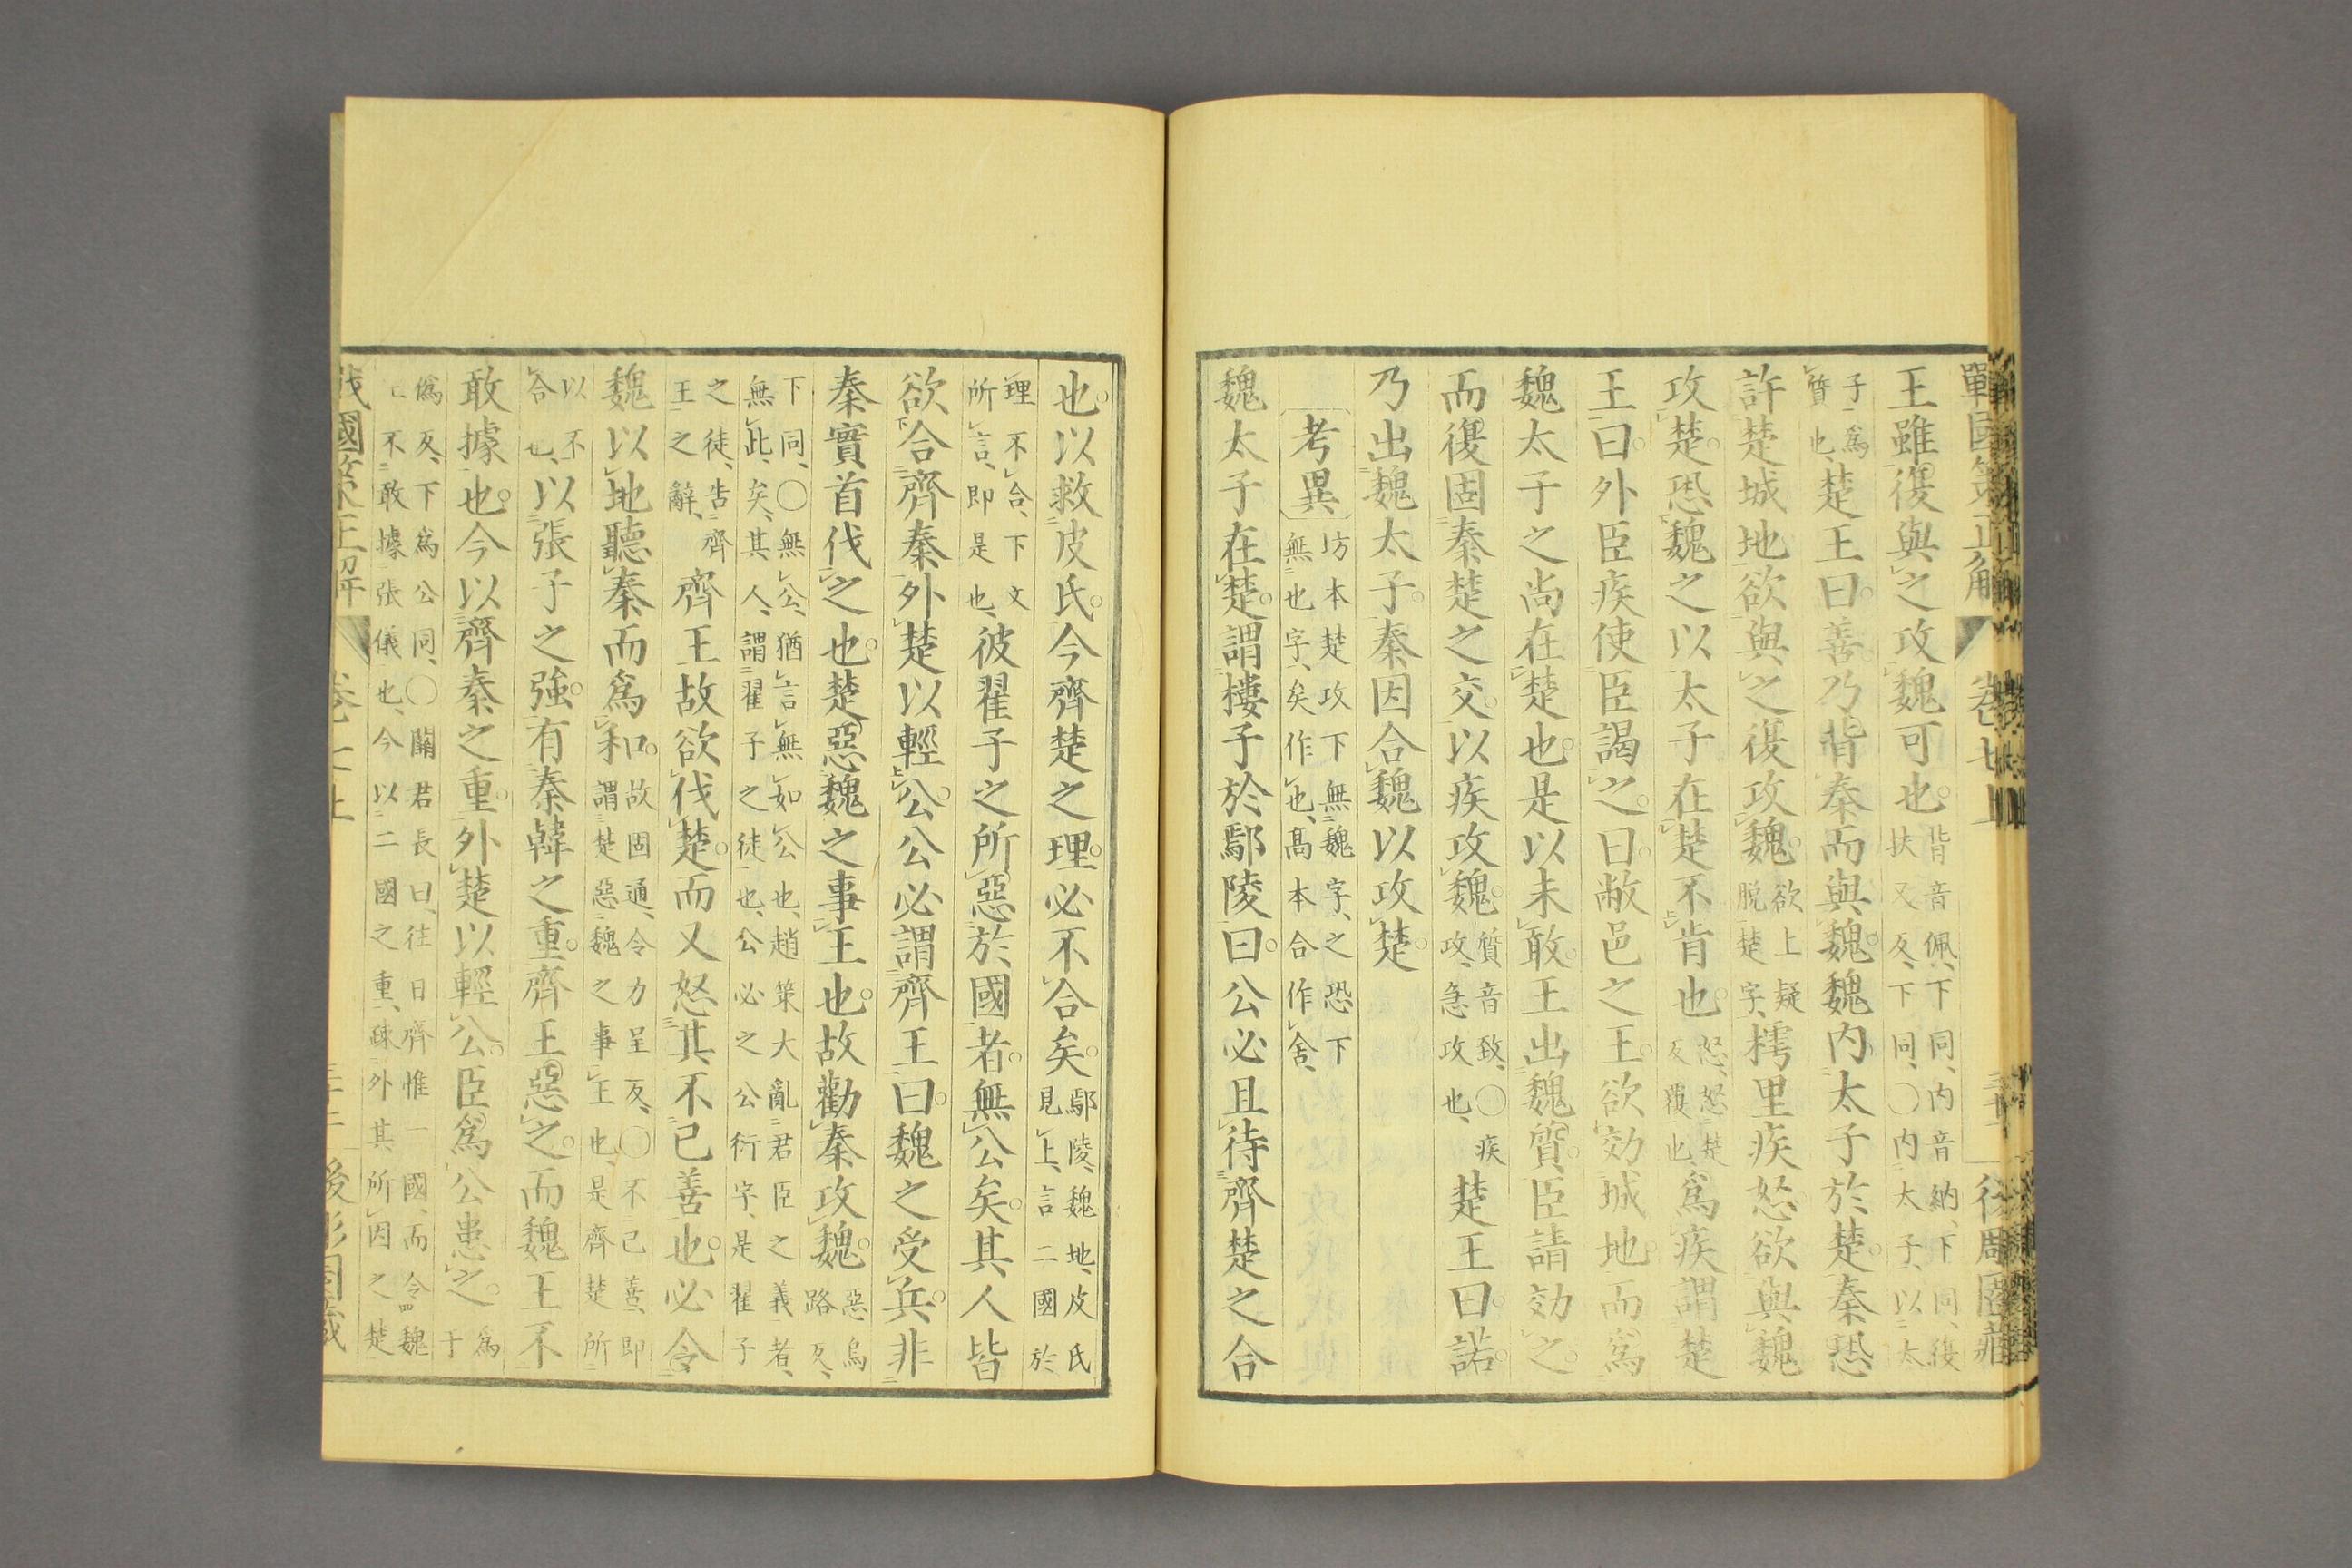 戰國策正解 卷七上
王雖復與之攻魏可也背音佩、下同、内音納、下同、復扶又反、下同、○内太子、以太
子爲質也、楚王曰善乃背秦而與魏魏内太子於楚秦恐
許楚城地欲與之復攻魏欲上疑脱楚字、樗里疾怒欲與魏
攻楚恐魏之以太子在楚不肯也怒、怒楚反覆也、爲疾謂楚
王曰外臣疾使臣謁之曰敝邑之王欲効城地而爲
魏太子之尚在楚也是以未敢王出魏質臣請効之
而復固秦楚之交以疾攻魏質音致、○疾攻、急攻也、楚王曰諾
乃出魏太子秦因合魏以攻楚
考異坊本楚攻下無魏字、之恐下無也字、矣作也、高本合作舍、
魏太子在楚謂樓子於鄢陵曰公必且待齊楚之合
也以救皮氏今齊楚之理必不合矣鄢陵、魏地、皮氏見上、言二國於
理不合、下文所言、即是也、彼翟子之所惡於國者無公矣其人皆
欲合齊秦外楚以輕公公必謂齊王曰魏之受兵非
秦實首伐之也楚惡魏之事王也故勸秦攻魏惡烏路反、
下同、○無公、猶言無如公也、趙策大亂君臣之義者、無此、矣、其人、謂翟子之徒也、公必之公衍字、是翟子
之徒、告齊王之辭、齊王故欲伐楚而又怒其不己善也必令
魏以地聽秦而爲和故固通、令力呈反、○不己善、即謂楚惡魏之事王也、是齊楚所
以不合也、以張子之強有秦韓之重齊王惡之而魏王不
敢據也今以齊秦之重外楚以輕公臣爲公患之爲于
僞反、下爲公同、○關君長曰、往日齊惟一國、而令魏不敢據張儀也、今以二國之重、疎外其所因之楚
戰國策正解 卷七上